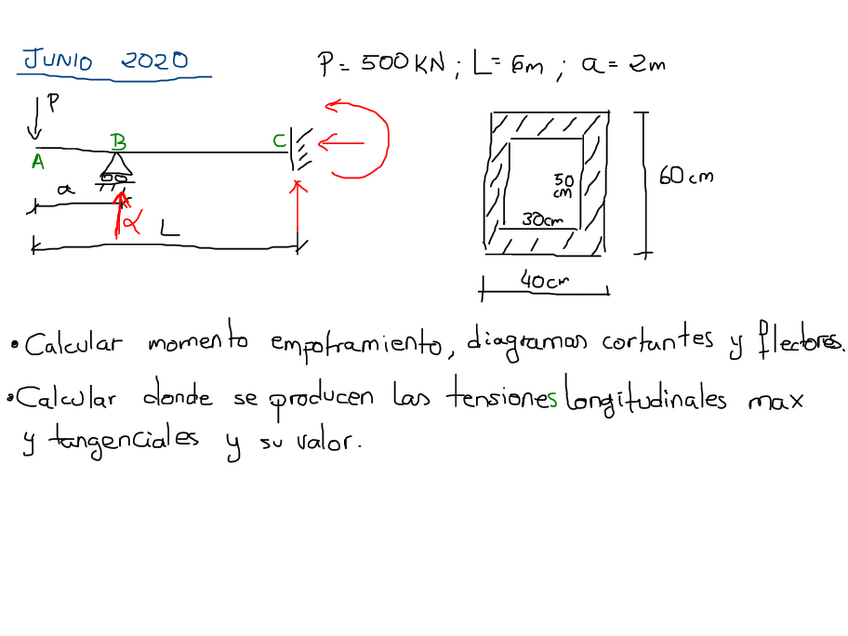 JUNIO 2020
P = 500 KN ; L = 6m ; a = 2m
P
A
B
C
a
α
L
50
cm
30cm
60 cm
40cm
• Calcular momento empotramiento, diagramas cortantes y flectores.
• Calcular donde se producen las tensiones longitudinales max
y tangenciales y su valor.